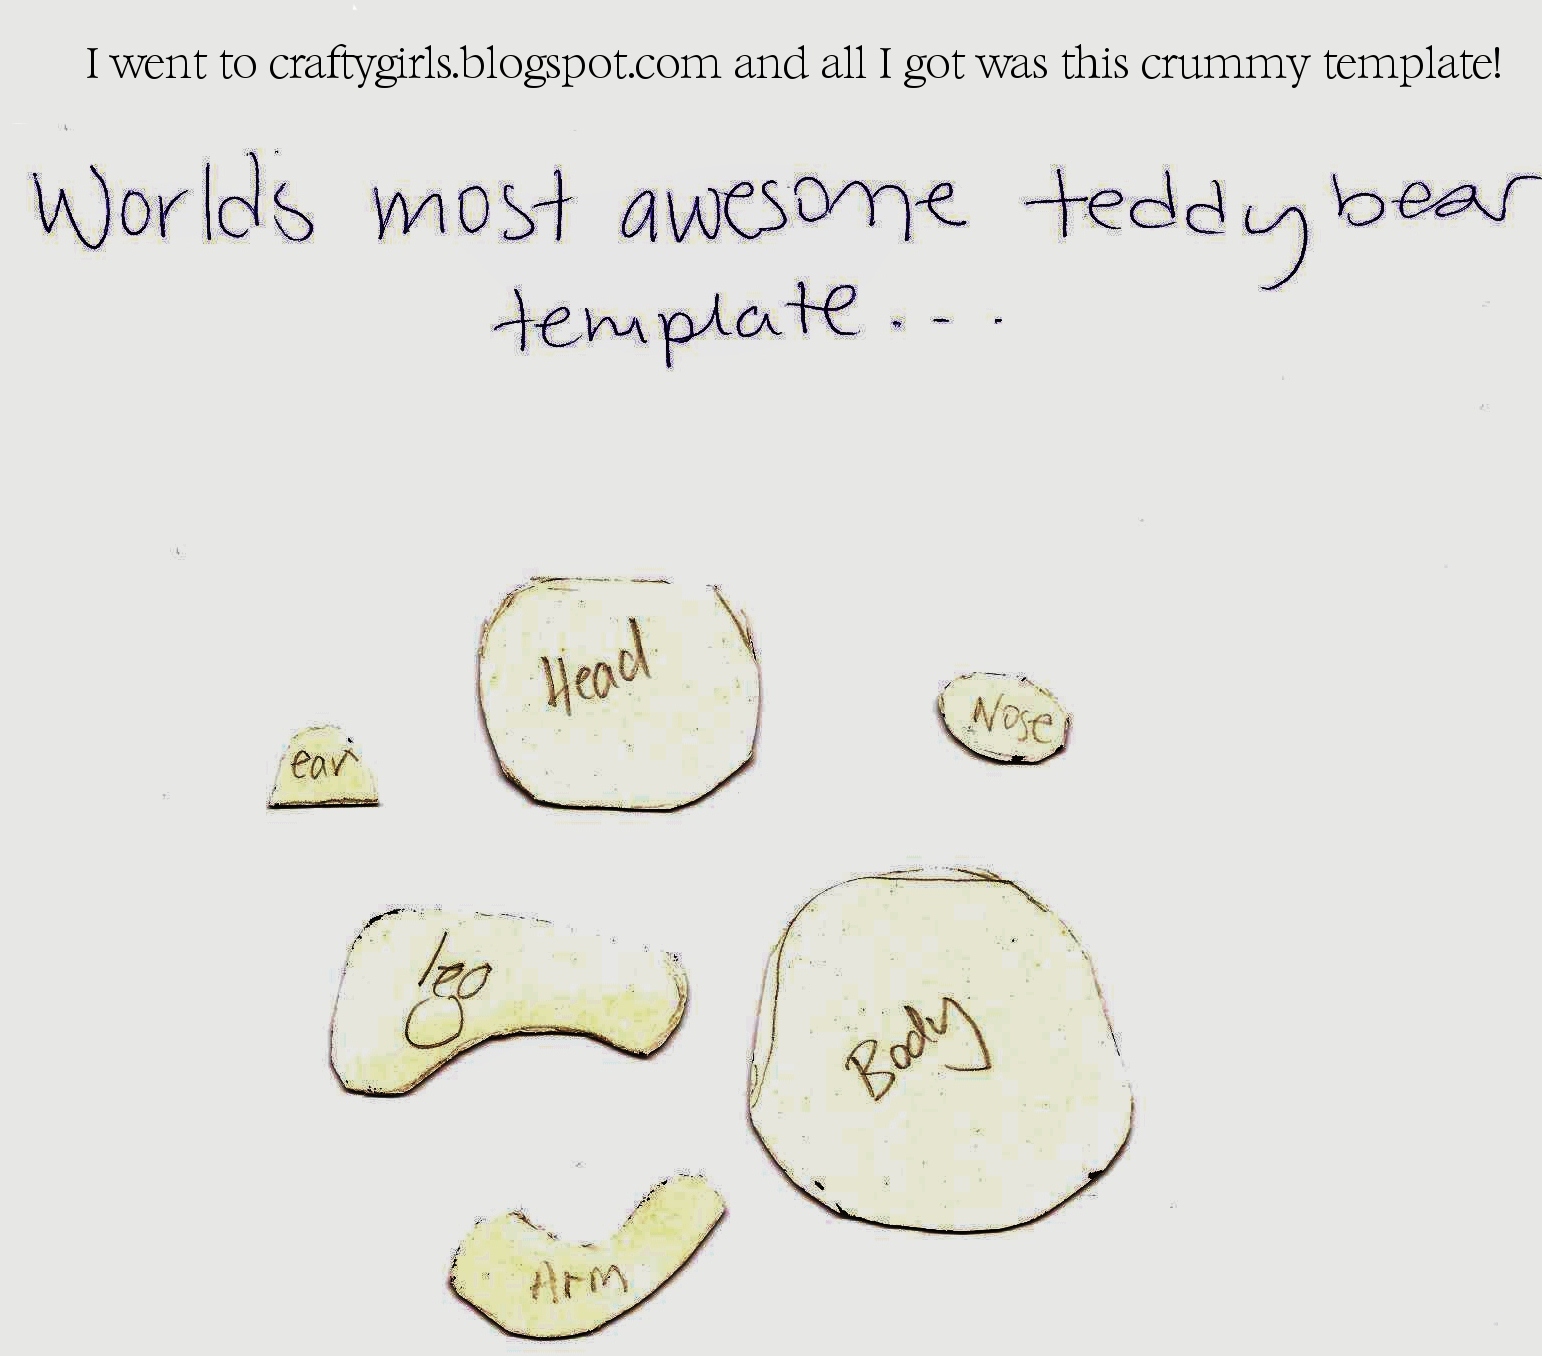 I went to craftygirls.blogspot.com and all I got was this crummy template!
Worlds most awesome teddy bear
template...
Head
Nose
ear
leg
Body
Arm